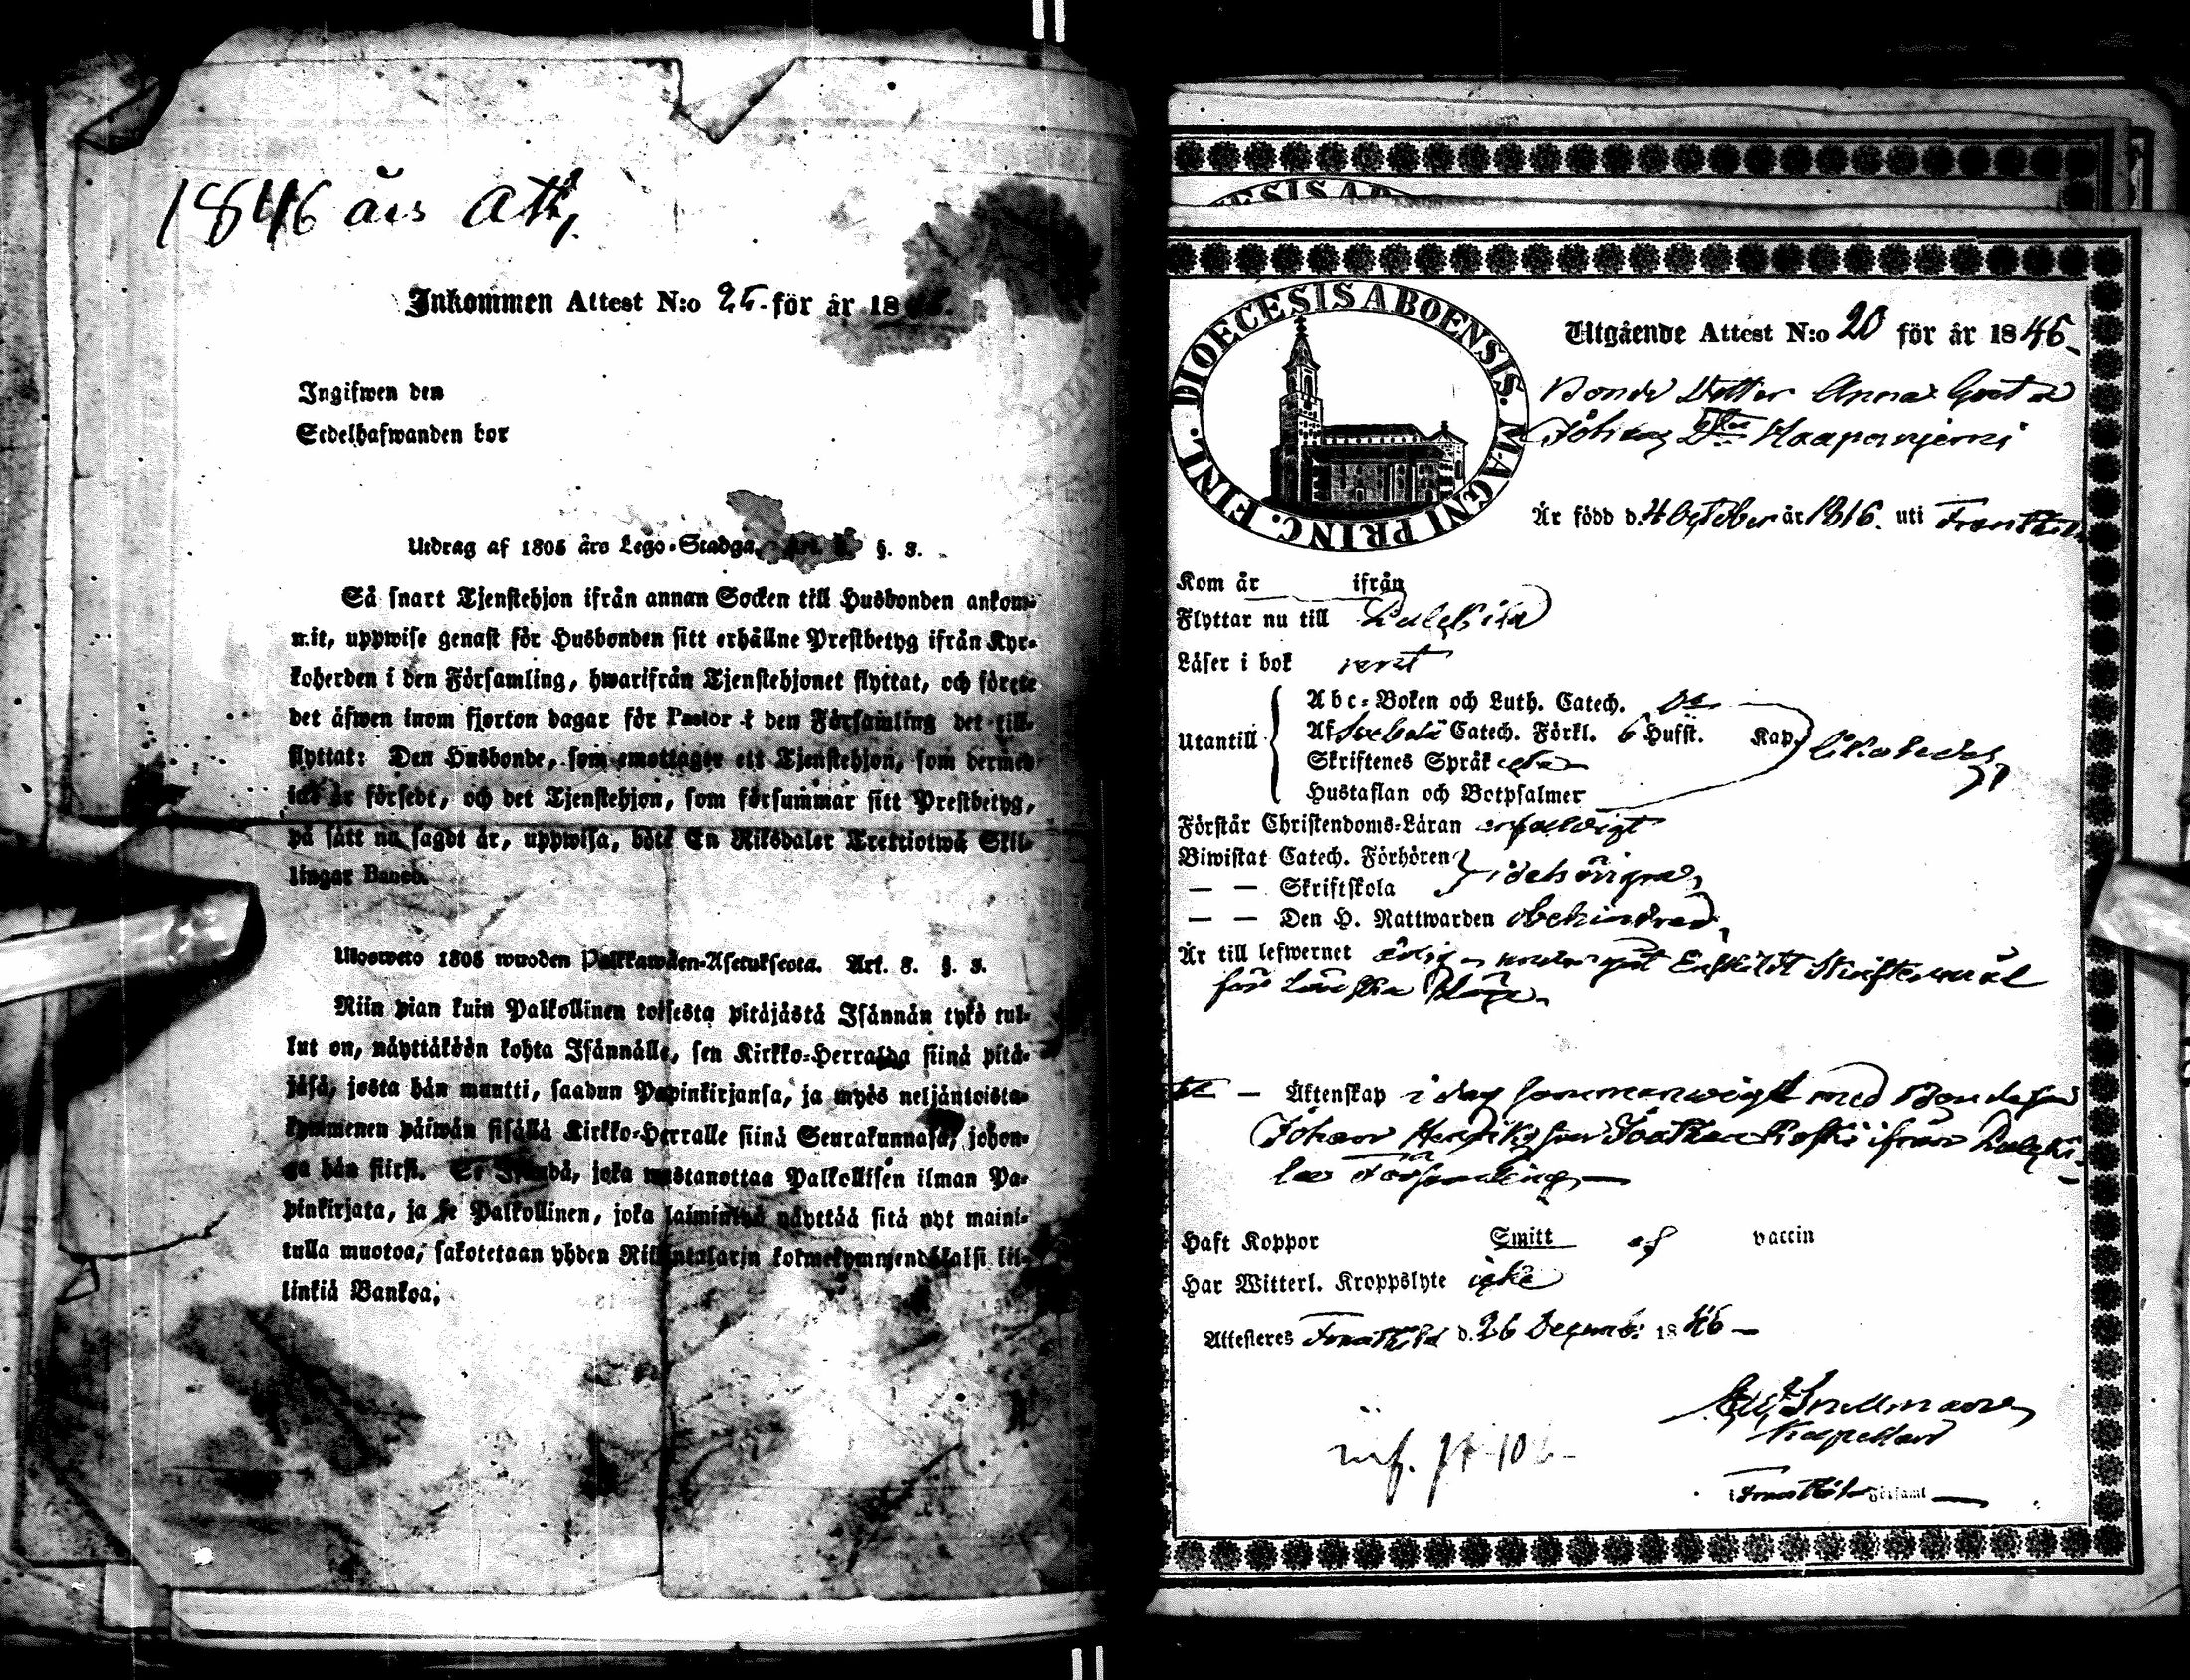 1846 års att,
Inkommen Attest N:o 25. för år 18
Ingifwen den
Sedelhafwanden bor
Utdrag af 1805 års Lego-Stadga, Art. §. 3.
Så snart Tjenstehjon ifrån annan Socken till Husbonden ankom-
mit, uppwise genast för Husbonden sitt erhållne Prestbetyg ifrån Kyr-
koherden i den Församling, hwarifrån Tjenstehjonet flyttat, och förete
det äfwen inom fjorton dagar för Pastor i den Församling det till-
flyttat: Den Husbonde, som emottager ett Tjenstehjon, som dermed
icke är försedt, och det Tjenstehjon, som försummar sitt Prestbetyg,
på sätt nu sagdt är, uppwisa, böte En Riksdaler Trettiotwå Skil-
lingar Banco.
Ulosweto 1805 wuoden Palkkawäen-Asetuksesta. Art. 8. §. 3.
Niin pian kuin Palkollinen toisesta pitäjästä Isännän tykö tul-
lut on, näyttäköön kohta Isännälle, sen Kirkko-Herralda siinä pitä-
jäsä, josta hän muutti, saadun Papinkirjansa, ja myös neljäntoista-
kymmenen päiwän sisällä Kirkko-Herralle siinä Seurakunnasa, johon-
ga hän siirsi. Se Isändä, joka wastanottaa Palkollisen ilman Pa-
pinkirjata, ja se Palkollinen, joka laiminlyö näyttää sitä nyt maini-
tulla muotoa, sakotetaan yhden Riksintalarin kolmekymmendäkaksi kil-
linkiä Bankoa.
DIOECESIS ABOENSIS. MAGNI PRINC. FINL.
Utgående Attest N:o 20 för år 1846
Bonde Dotter Anna Greta
Johans Dtter Haapaniemi
År född d. 4 October år 1816. uti Frantsila
Kom år ifrån
Flyttar nu till Pulckila
Läser i bok rent
Utantill
Abc-Boken och Luth. Catech.
Af Svebelii Catech. Förkl. 6 Hufst. Kap.
Skriftenes Språk
Hustaflan och Botpsalmer
Förstår Christendoms-Läran enfaldigt
Biwistat Catech. Förhören
— — Skriftskola behörigen,
— — Den H. Nattwarden obehindrad,
Är till lefwernet ärlig, undergått Enskildt Skriftermål
för Läger.
— Äktenskap i dag sammanwigd med Bondeson
Johan Henriksson ifrån Pulcki-
la Församling
Haft Koppor Smitt af vaccin
Har Witterl. Kroppslyte icke
Attesteres Frantsila d. 26 Decemb: 1846
Snellman
Kapellan
i Frantsila Församl.